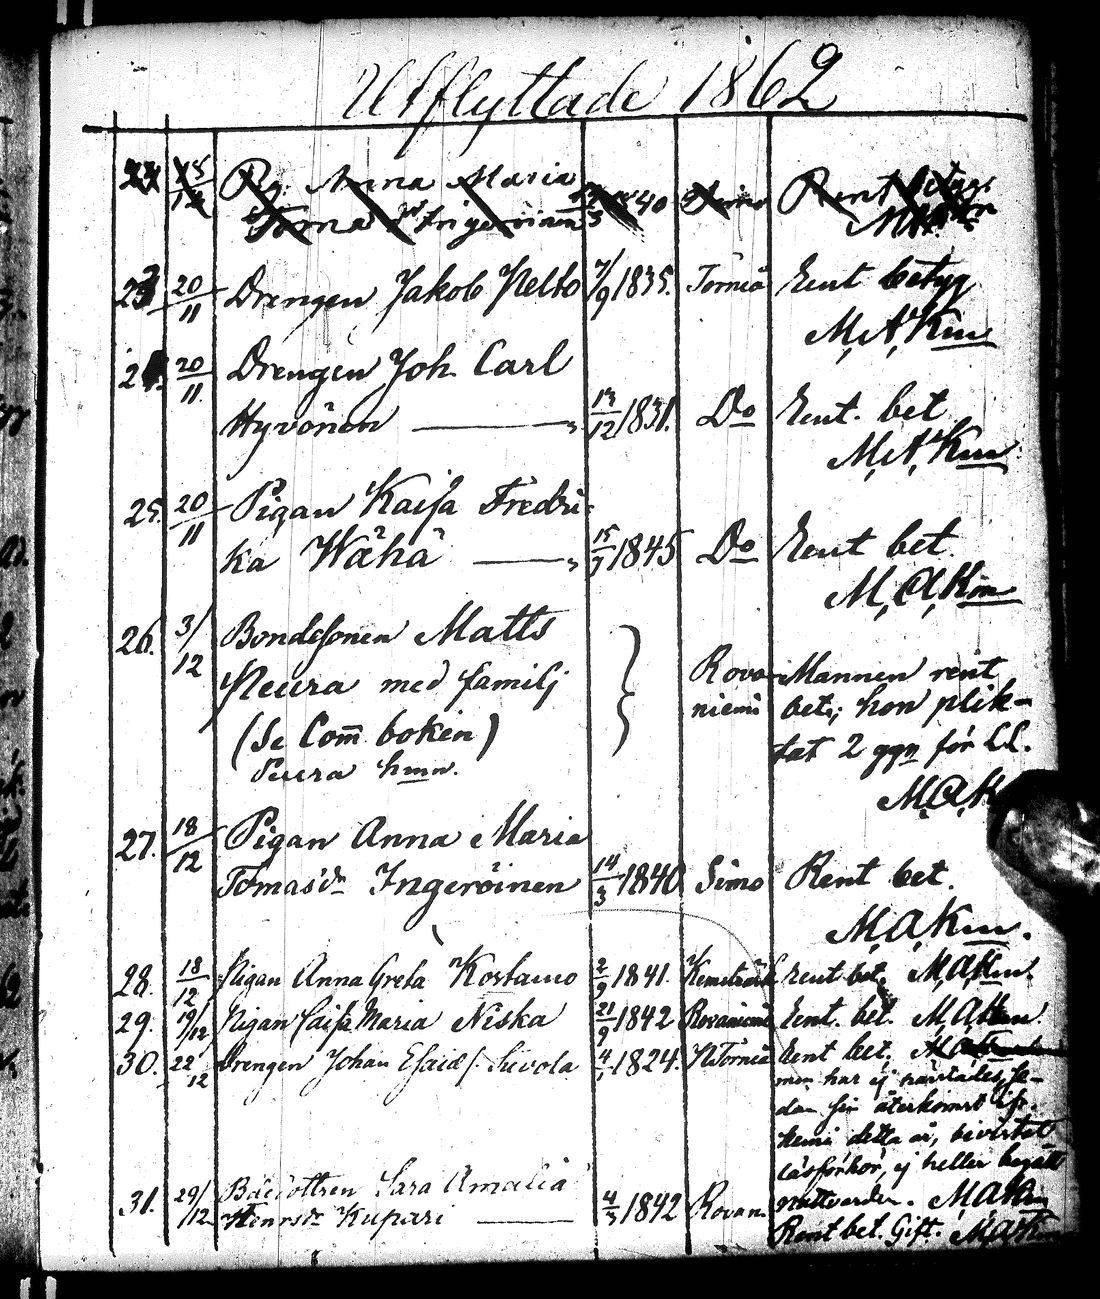 Utflyttade 1862
Pig. Anna Maria
Ingeroinen 40 Simo Rent betyg
23 20/11 Drengen Jakob Kelto 7/9 1835. Torneå Rent betyg
M,A,Km
24. 20/11 Drengen Joh. Carl
Hyvönen 13/12 1831. Do Rent. bet
M,A,Km
25. 20/11 Pigan Kaisa Fredri-
ka Wähä 15/7 1845 Do Rent bet.
M,A,Km
26. 3/12 Bondesonen Matts
Peura med familj Rova- Mannen rent
(Se Com̅ boken) niemi bet; hon plik-
Peura hmn. tat 2 ggn för LL.
M,A,K
27. 18/12 Pigan Anna Maria
Tomasdn Ingeröinen 14/3 1840 Simo Rent bet.
M,A,Km.
28. 18/12 Pigan Anna Greta Kostamo 2/9 1841. Kemiträsk Rent bet. M,A,Km.
29. 19/12 Pigan Caisa Maria Niska 21/9 1842 Rovaniemi Rent. bet. M,A,Km.
30. 22/12 Drengen Johan Esaias s. Sivola 4/1 1824. N Torneå Rent bet.
men har ej
dan sin återkomst
Kemi detta år, bevistat
läsförhör, ej heller begått
nattvarden. M,A,Km
31. 29/12 Sara Amalia
Henrsdn Kupari 4/3 1842 Rovan. Rent bet. Gift. M,A,Km